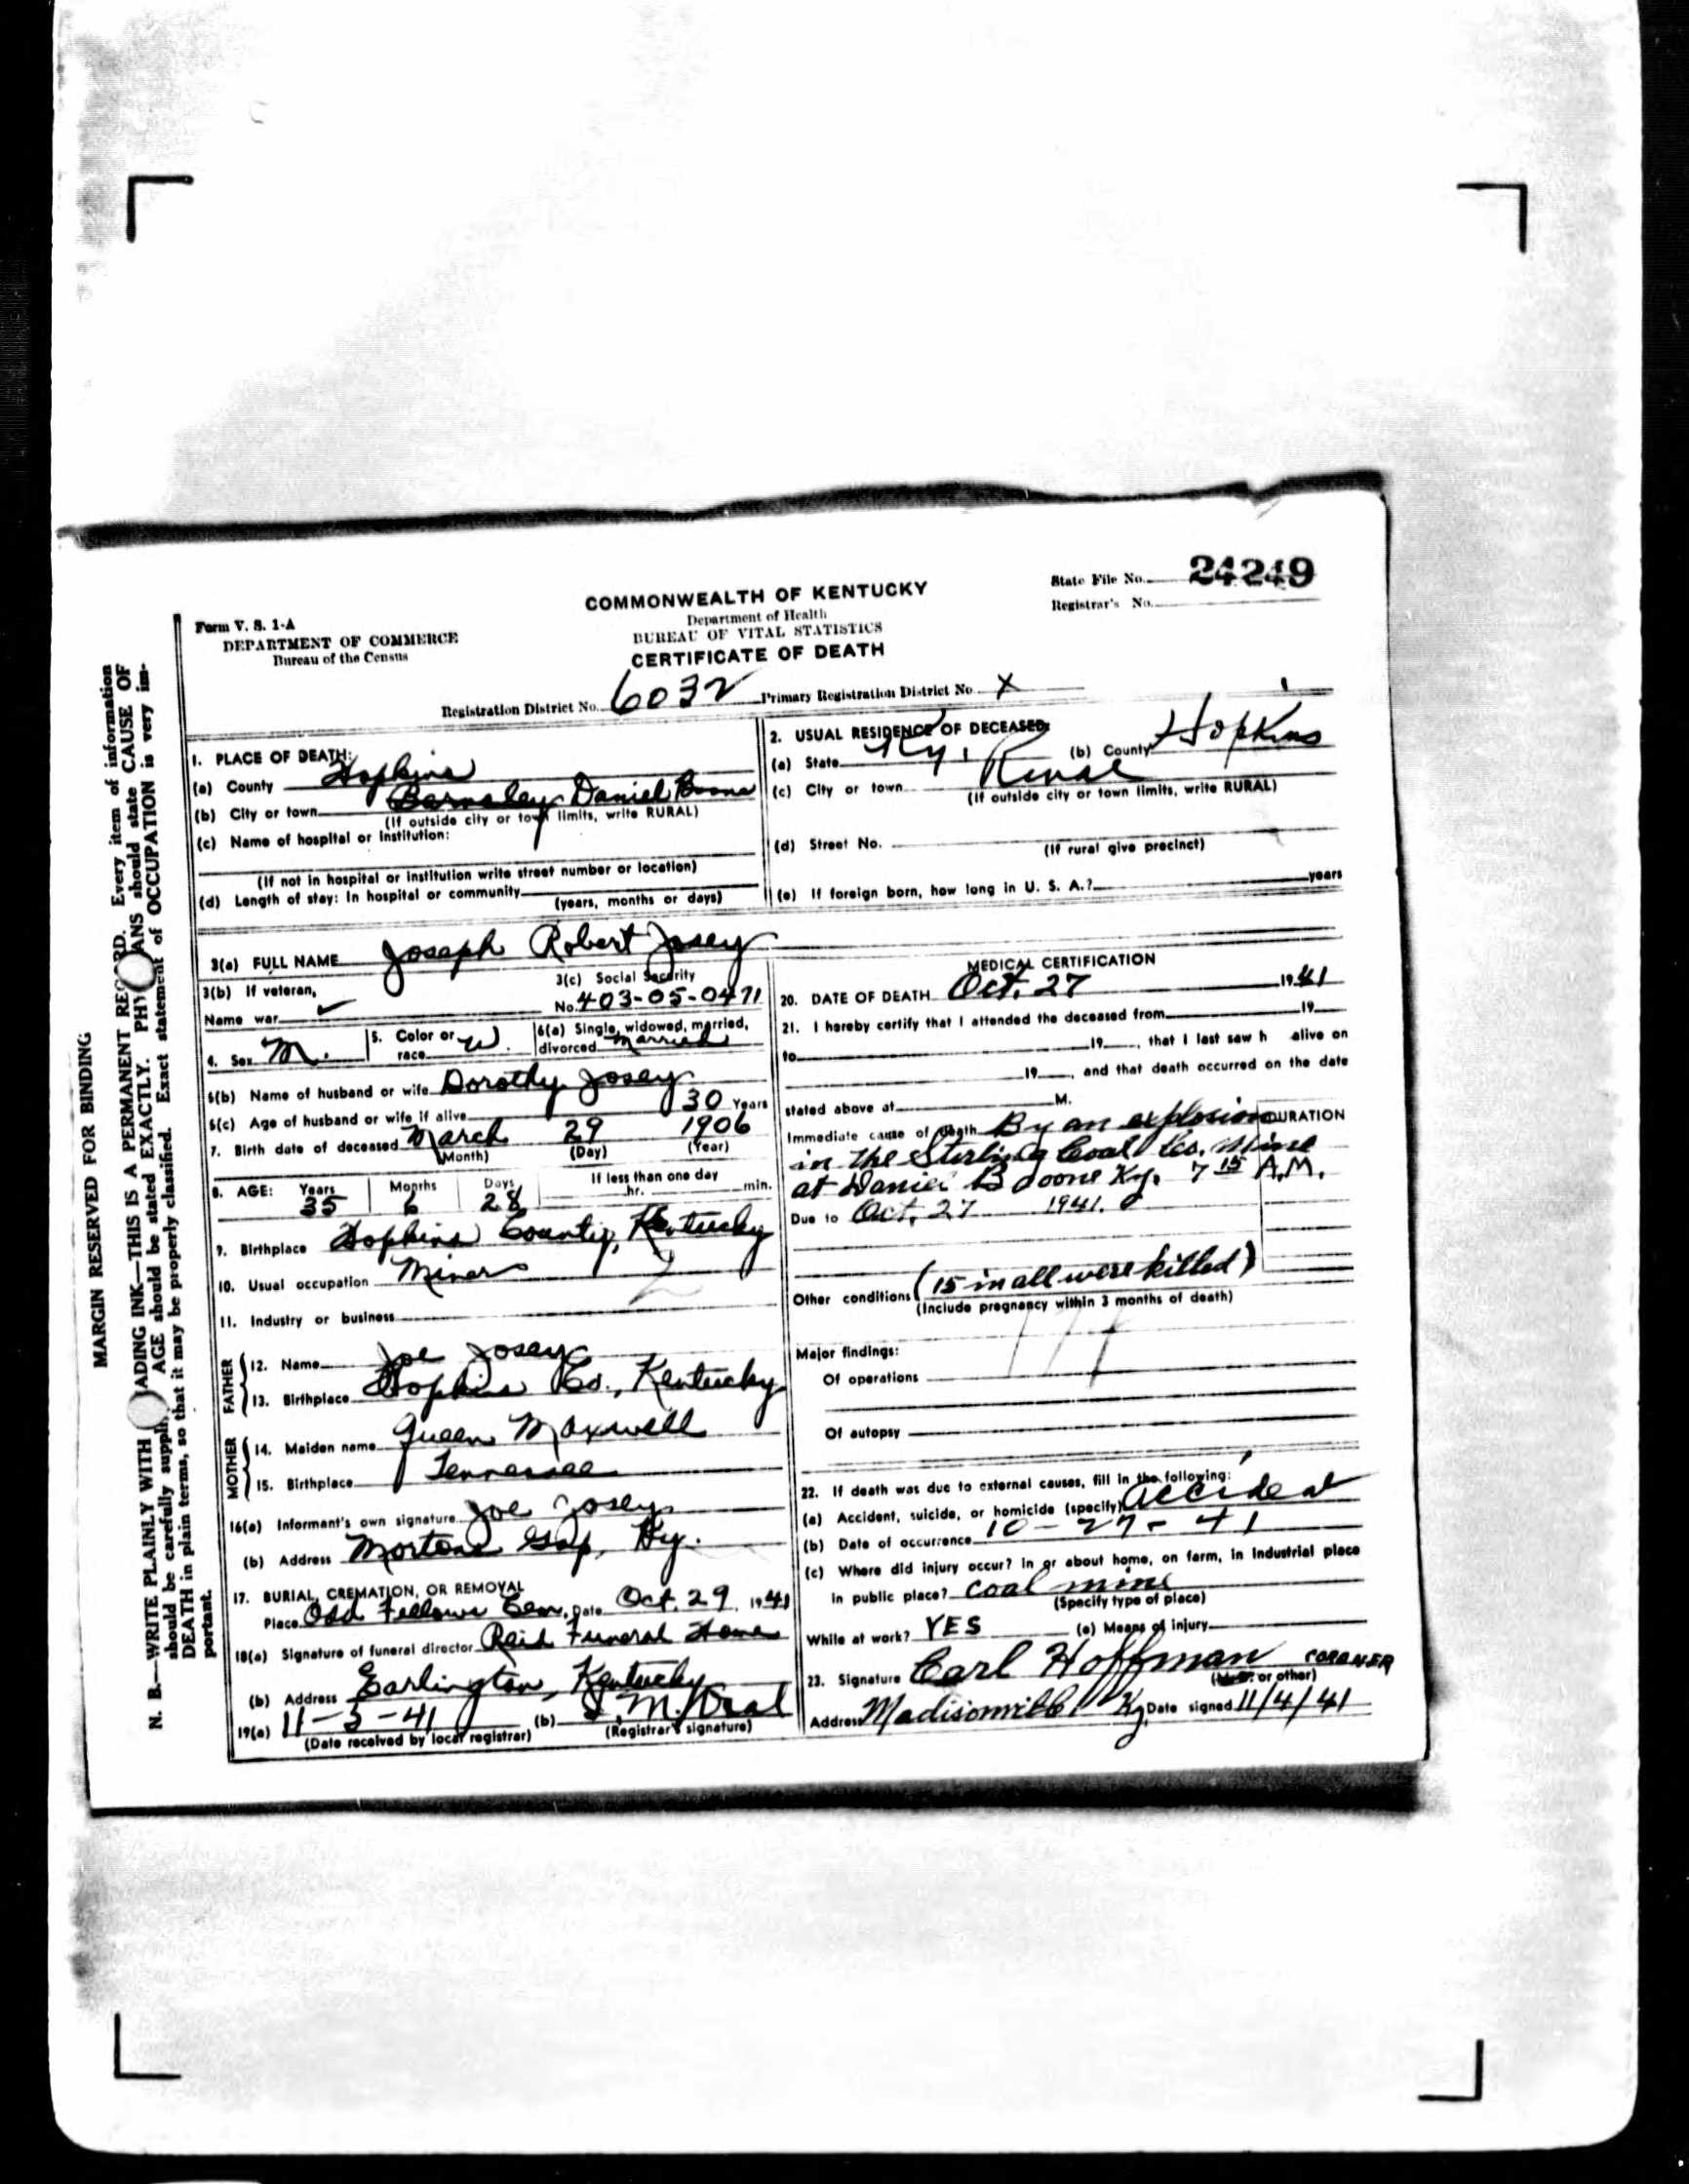 State File No. 24249
Registrar's No.
COMMONWEALTH OF KENTUCKY
Department of Health
BUREAU OF VITAL STATISTICS
CERTIFICATE OF DEATH
Form V. S. 1-A
DEPARTMENT OF COMMERCE
Bureau of the Census
Registration District No. 6032 Primary Registration District No. X
MARGIN RESERVED FOR BINDING
N. B.—WRITE PLAINLY WITH ADING INK—THIS IS A PERMANENT RECORD. Every item of information
should be carefully suppli AGE should be stated EXACTLY. PHY ANS should state CAUSE OF
DEATH in plain terms, so that it may be properly classified. Exact statement of OCCUPATION is very im-
portant.
1. PLACE OF DEATH:
(a) County Hopkins
(b) City or town Barnsley Daniel Boone
(If outside city or town limits, write RURAL)
(c) Name of hospital or institution:
(If not in hospital or institution write street number or location)
(d) Length of stay: In hospital or community
(years, months or days)
2. USUAL RESIDENCE OF DECEASED:
(a) State Ky. (b) County Hopkins
(c) City or town Rural
(If outside city or town limits, write RURAL)
(d) Street No.
(If rural give precinct)
(e) If foreign born, how long in U. S. A.? years
3(a) FULL NAME Joseph Robert Josey
3(b) If veteran,
Name war
3(c) Social Security
No. 403-05-0471
4. Sex M.
5. Color or
race W.
6(a) Single, widowed, married,
divorced Married
6(b) Name of husband or wife Dorothy Josey
6(c) Age of husband or wife if alive 30 Years
7. Birth date of deceased March 29 1906
(Month) (Day) (Year)
8. AGE: Years Months Days If less than one day
35 6 28 hr. min.
9. Birthplace Hopkins County, Kentucky
10. Usual occupation Miner
11. Industry or business
FATHER
12. Name Joe Josey
13. Birthplace Hopkins Co., Kentucky
MOTHER
14. Maiden name Queen Maxwell
15. Birthplace Tennessee
16(a) Informant's own signature Joe Josey
(b) Address Mortons Gap, Ky.
17. BURIAL, CREMATION, OR REMOVAL
Place Odd Fellows Cem. Date Oct. 29, 1941
18(a) Signature of funeral director Reid Funeral Home
(b) Address Earlington, Kentucky
19(a) 11-5-41 (b)
(Date received by local registrar) (Registrar's signature)
MEDICAL CERTIFICATION
20. DATE OF DEATH Oct. 27 1941
21. I hereby certify that I attended the deceased from 19
to 19 , that I last saw h alive on
19 , and that death occurred on the date
stated above at M.
Immediate cause of death By an explosion DURATION
in the Sterling Coal Co. Mine
at Daniel Boone Ky. 7 15 A.M.
Due to Oct. 27 1941.
(15 in all were killed)
Other conditions
(Include pregnancy within 3 months of death)
Major findings:
Of operations
Of autopsy
22. If death was due to external causes, fill in the following:
(a) Accident, suicide, or homicide (specify) Accident
(b) Date of occurrence 10-27-41
(c) Where did injury occur? In or about home, on farm, in industrial place
in public place? coal mine
(Specify type of place)
While at work? YES (e) Means of injury
23. Signature Carl Hoffman CORONER
(M.D. or other)
Address Madisonville Ky. Date signed 11/4/41